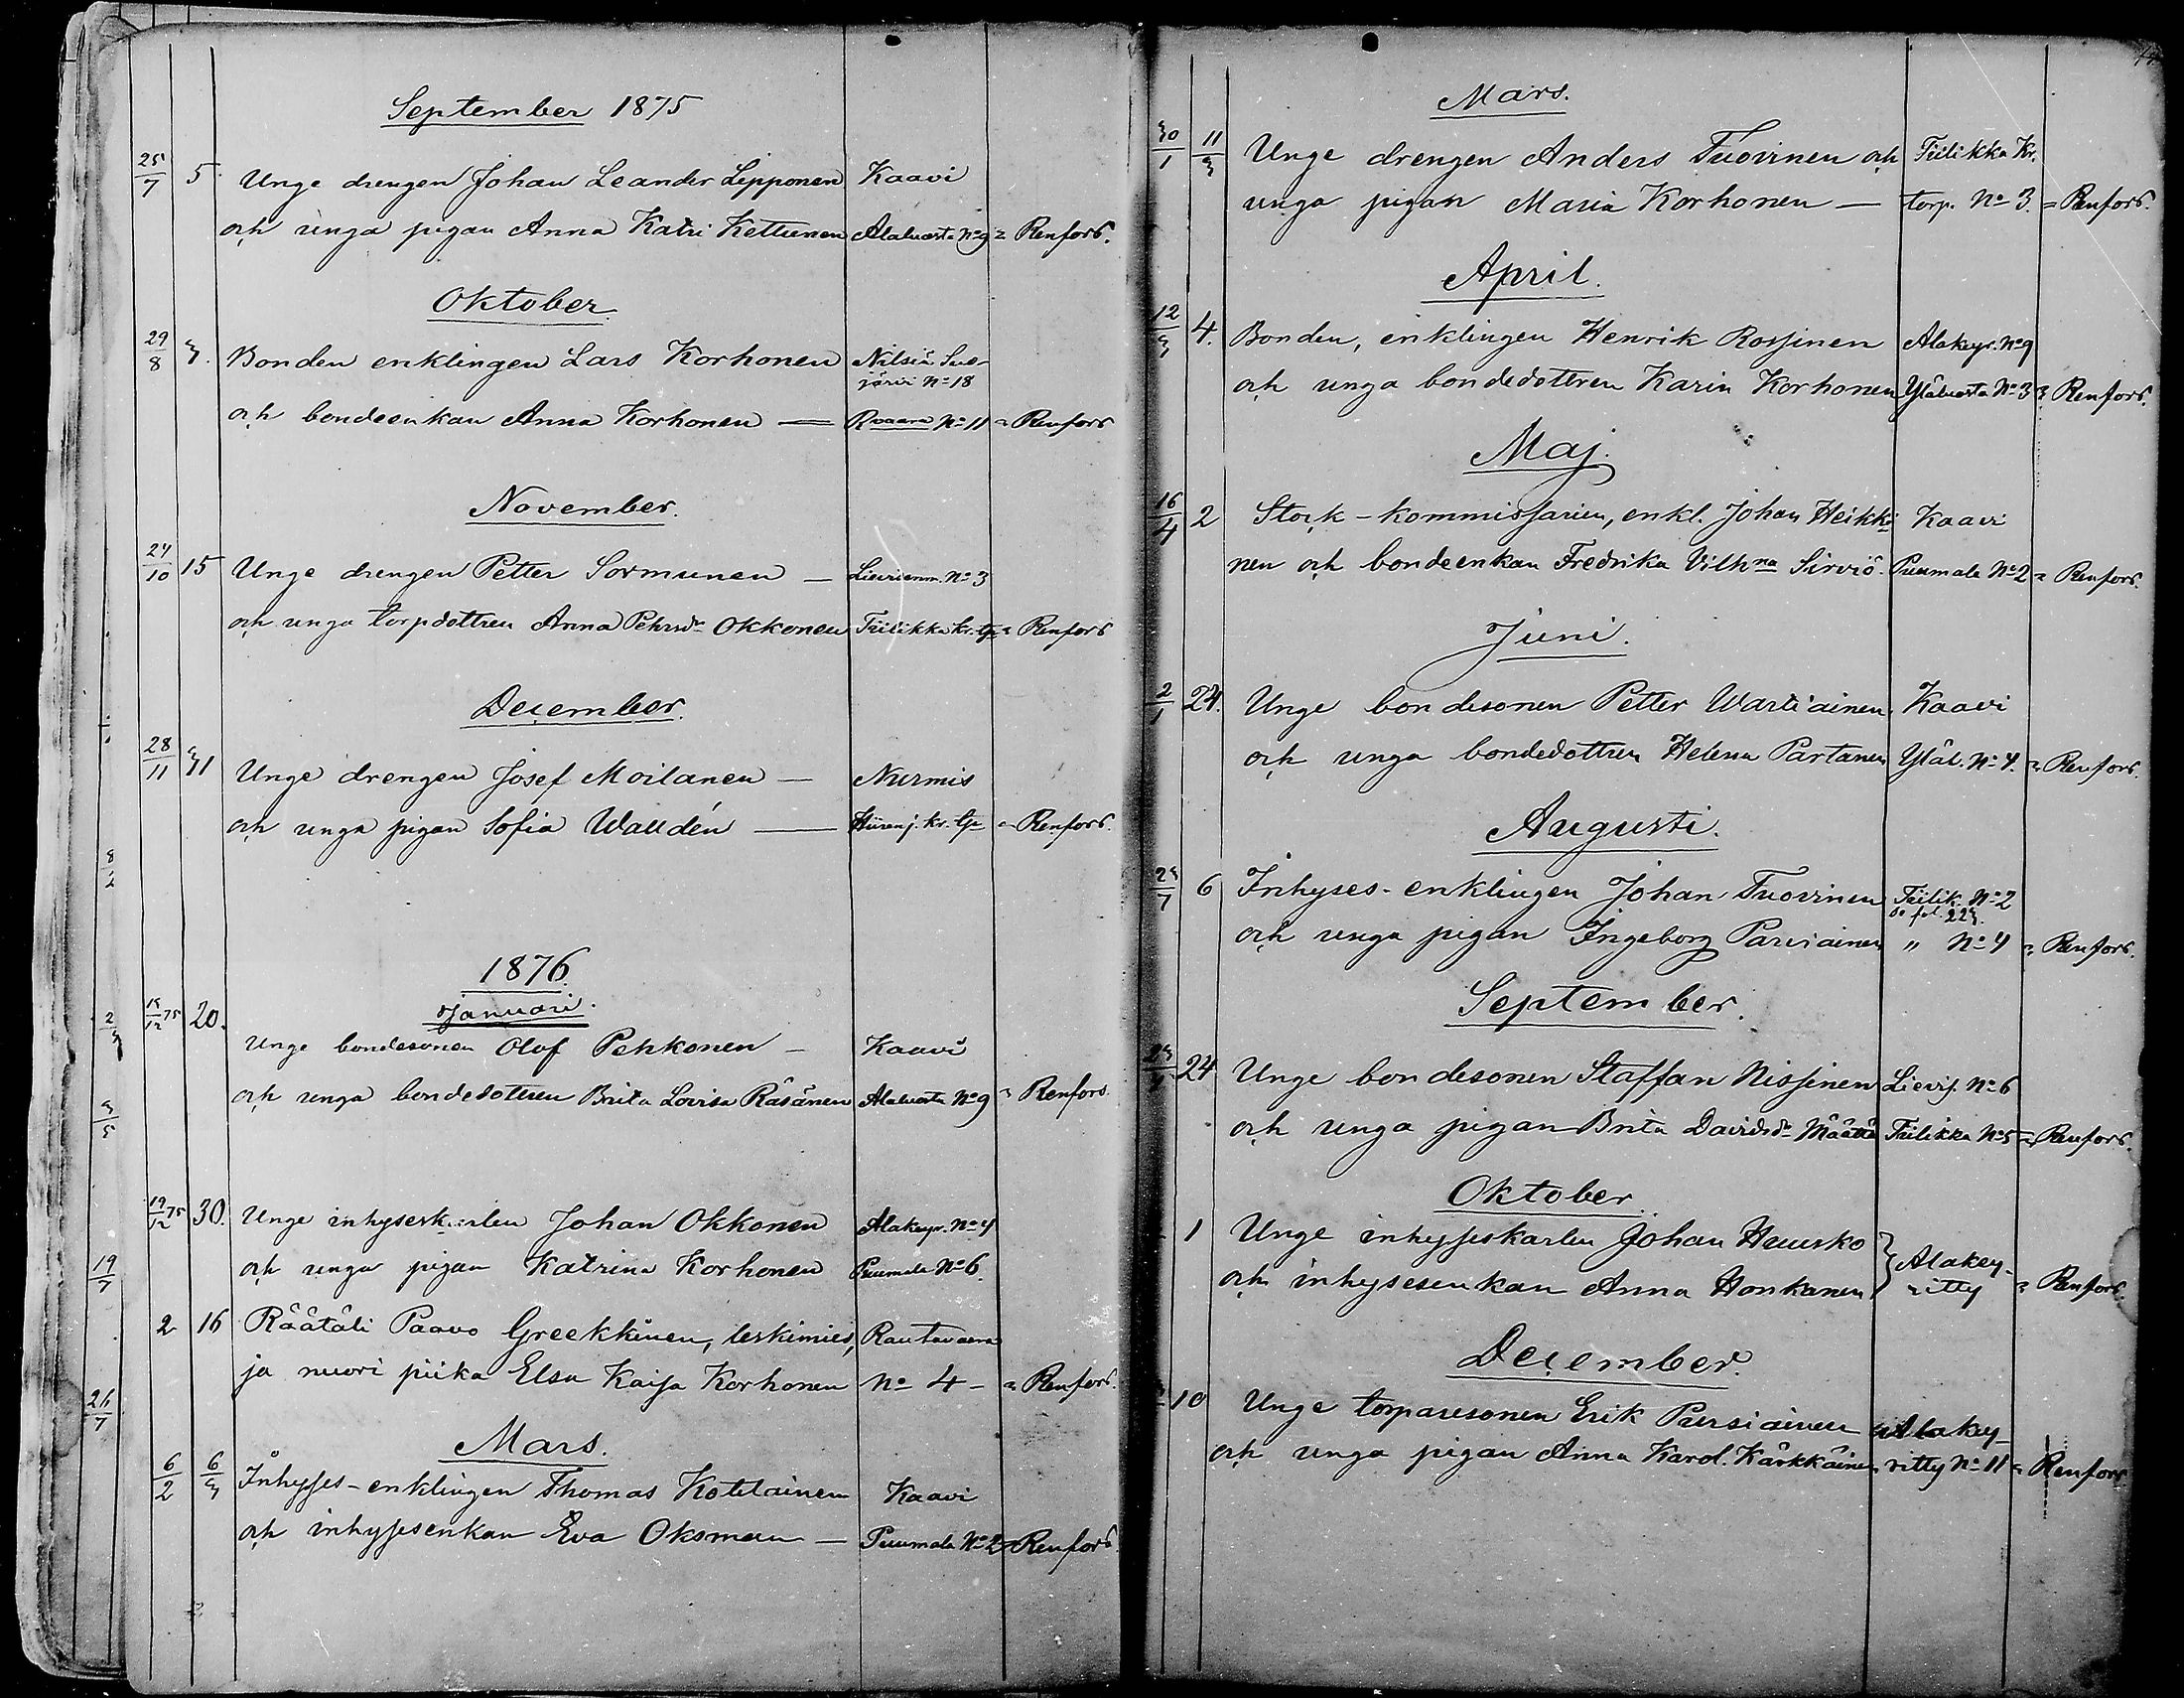 September 1875
25/7 5 Unge drengen Johan Leander Lipponen Kaavi
och unga pigan Anna Katri Kettunen Alaluosta No 9 = Renfors.
Oktober
29/8 3. Bonden enklingen Lars Korhonen Nilsiä Sue-
järvi No 18
och bondeenkan Anna Korhonen — Rvaara No 11 = Renfors
November.
24/10 15 Unge drengen Petter Sormunen — No 3
och unga torpdottren Anna Pehrsdr Okkonen Tiilikka kr. tp = Renfors
December.
28/11 31 Unge drengen Josef Moilanen — Nurmis
och unga pigan Sofia Walldén — Hiirenj. kr. tp = Renfors.
1876.
Januari.
/12 75 20. Unge bondesonen Olof Pekkonen — Kaavi
och unga bondedottren Brita Lovisa Räsänen Alaluosta No 9 = Renfors.
19/12 75 30. Unge inhyseskarlen Johan Okkonen Alakeyr. No 4
och unga pigan Katrina Korhonen Puumala No 6.
2 16 Räätäli Paavo Greekkinen, leskimies, Rautavaara
ja nuori piika Elsa Kaisa Korhonen No 4 — = Renfors.
Mars.
6/2 6/3 Inhysses-enklingen Thomas Kotilainen Kaavi
och inhyssenkan Eva Oksman — Puumala No 2 = Renfors.
Mars.
30/1 11/3 Unge drengen Anders Tuovinen och Tiilikka Kr.
unga pigan Maria Korhonen — torp. No 3. = Renfors.
April.
12/3 4. Bonden, enklingen Henrik Rossinen Alakeyr. No 9
och unga bondedottren Karin Korhonen Yläluosta No 3 = Renfors.
Maj.
16/4 2 Stock-kommissarien, enkl. Johan Heikki
nen och bondeenkan Fredrika Vilhna Sirviö. Kaavi
Puumala No 2 = Renfors.
Juni.
2/1 24. Unge bondesonen Petter Wartiainen Kaavi
och unga bondedottren Helena Partanen Yläl. No 4. = Renfors.
Augusti.
23/7 6 Inhyses-enklingen Johan Tuovinen Tiilik. No 2
fol. 223.
och unga pigan Ingeborg Parviainen " No 4 = Renfors.
September.
24 Unge bondesonen Staffan Nissinen Lievij. No 6
och unga pigan Brita Davidsdr Määttä Tiilikka No 5 = Renfors.
Oktober.
1 Unge inhysseskarlen Johan Huusko
och inhysesenkan Anna Honkanen } Alakey-
ritty = Renfors.
December.
10 Unge torparesonen Erik Pursiainen Alakey-
och unga pigan Anna Karol. Kärkkäinen ritty No 11 = Renfors
8/2
2/3
3/5
19/7
26/7